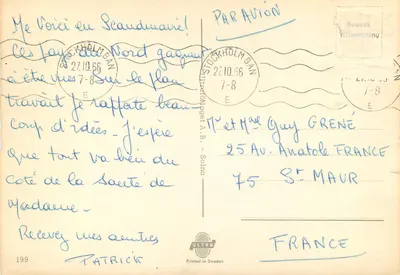 Me Voici en Scandinavie!
Ces Pays du Nord gagnent
a être vus. Sur le plan
travail je rapporte beau-
coup d'idées. J'espère
que tout va bien du
coté de la Santé de
Madame.
Recevez mes amitiés
PATRICK
199
PAR AVION
STOCKHOLM BAN
27.10.66
7-8
E
STOCKHOLM BAN
27.10.66
7-8
E
10.66
7-8
E
Mr et Mme Guy GRENÉ
25 Av. Anatole FRANCE
75 St MAUR
FRANCE
A.B. - Solna
ULTRA
Printed in Sweden